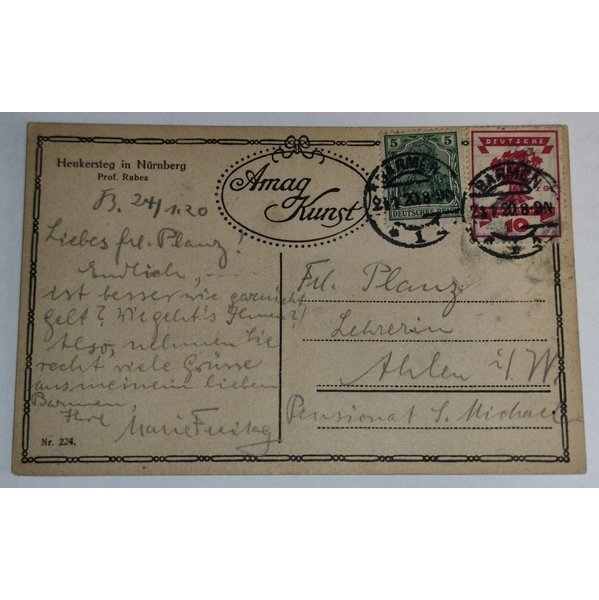 Henkersteg in Nürnberg
Prof. Rabes
Amag
Kunst
5
DEUTSCHES
DEUTSCHE
10
BARMEN
1
BARMEN
B. 24/1.20
Liebes Frl. Planz!
Endlich, –
ist besser wie garnicht
gelt? Wie geht's Ihnen?
Also, nehmen Sie
recht viele Grüsse
aus meinem lieben
Barmen,
Ihre
Marie Freitag
Frl. Planz
Lehrerin
Ahlen i/W
Pensionat S. Michael
Nr. 224.